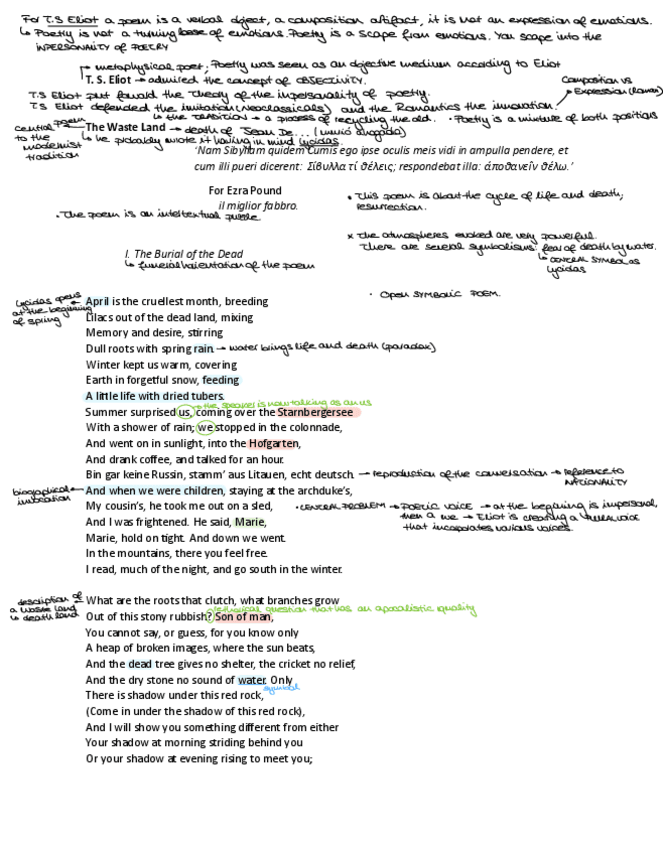 For T.S Eliot a poem is a verbal object, a composition artifact, it is not an expression of emotions.
Poetry is not a turning loose of emotions. Poetry is a scape from emotions. You scape into the
IMPERSONALITY OF POETRY
metaphysical poet; Poetry was seen as an objective medium according to Eliot
T. S. Eliot → admired the concept of OBJECTIVITY.
Composition vs
Expression (Roman)
T.S Eliot put foward the theory of the impersonality of poetry.
TS Eliot defended the imitation (neoclassicals) and the Romantics the innovation.
the tradition → a process of recycling the old. · Poetry is a mixture of both positions
central poem
to the
modernist
tradition
The Waste Land → death of Jean De... (murió ahogado)
he probably wrote it having in mind Lycidas.
'Nam Sibyllam quidem Cumis ego ipse oculis meis vidi in ampulla pendere, et
cum illi pueri dicerent: Σίβυλλα τί θέλεις; respondebat illa: ἀποθανεῖν θέλω.'
For Ezra Pound
il miglior fabbro.
· The poem is an intertextual puzzle
• This poem is about the cycle of life and death,
resurrection.
x The atmospheres evoked are very powerful.
There are several symbolisms: fear of death by water.
CENTRAL SYMBOL as
Lycidas
I. The Burial of the Dead
funeral orientation of the poem
· OPEN SYMBOLIC POEM.
Lycidas opens
at the beginning
of spring
April is the cruellest month, breeding
Lilacs out of the dead land, mixing
Memory and desire, stirring
Dull roots with spring rain. → water brings life and death (paradox)
Winter kept us warm, covering
Earth in forgetful snow, feeding
A little life with dried tubers.
the speaker is now talking as an us
Summer surprised us, coming over the Starnbergersee
With a shower of rain; we stopped in the colonnade,
And went on in sunlight, into the Hofgarten,
And drank coffee, and talked for an hour.
Bin gar keine Russin, stamm' aus Litauen, echt deutsch. → reproduction of the conversation → reference to
NATIONALITY
biographical
And when we were children, staying at the archduke's,
My cousin's, he took me out on a sled,
· CENTRAL PROBLEM → POETIC VOICE → at the beginning is impersonal,
then a we → Eliot is creating a voice
that incorporates various voices.
And I was frightened. He said, Marie,
Marie, hold on tight. And down we went.
In the mountains, there you feel free.
I read, much of the night, and go south in the winter.
description of
a waste land
death land
What are the roots that clutch, what branches grow
rhetorical question that has an apocaliptic quality
Out of this stony rubbish? Son of man,
You cannot say, or guess, for you know only
A heap of broken images, where the sun beats,
And the dead tree gives no shelter, the cricket no relief,
And the dry stone no sound of water. Only
symbol
There is shadow under this red rock,
(Come in under the shadow of this red rock),
And I will show you something different from either
Your shadow at morning striding behind you
Or your shadow at evening rising to meet you;